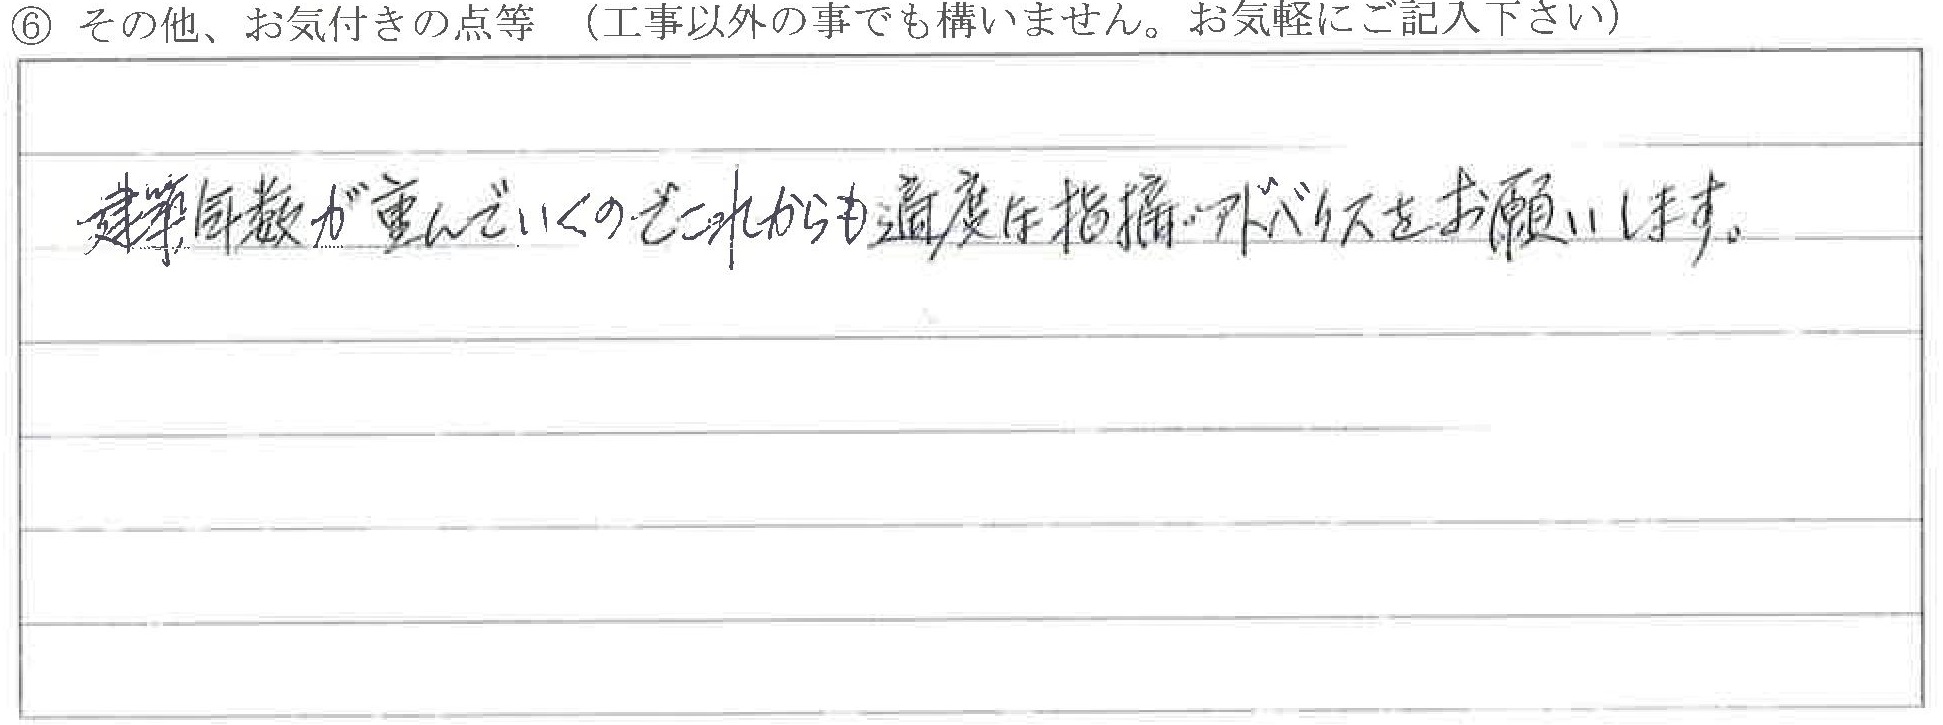 ⑥ その他、お気付きの点等 （工事以外の事でも構いません。お気軽にご記入下さい）
建築年数が重んでいくのでこれからも適度な指摘・アドバイスをお願いします。